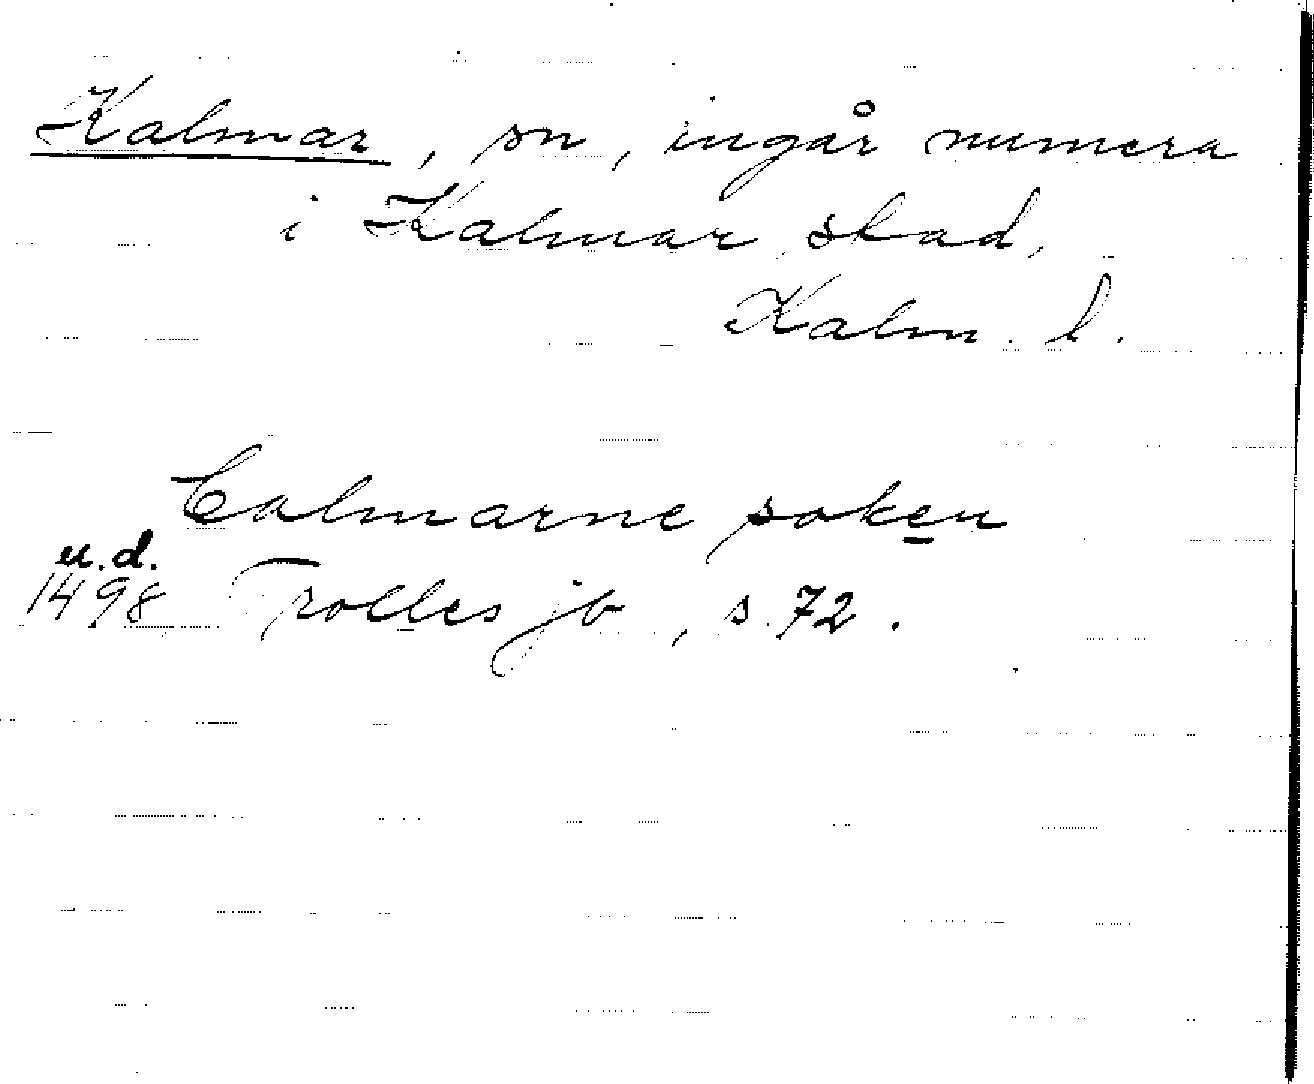 Kalmar, sn, ingår numera
i Kalmar stad,
Kalm. l.
Calmarne soken
u.d.
1498 Trolles jb, s. 72.